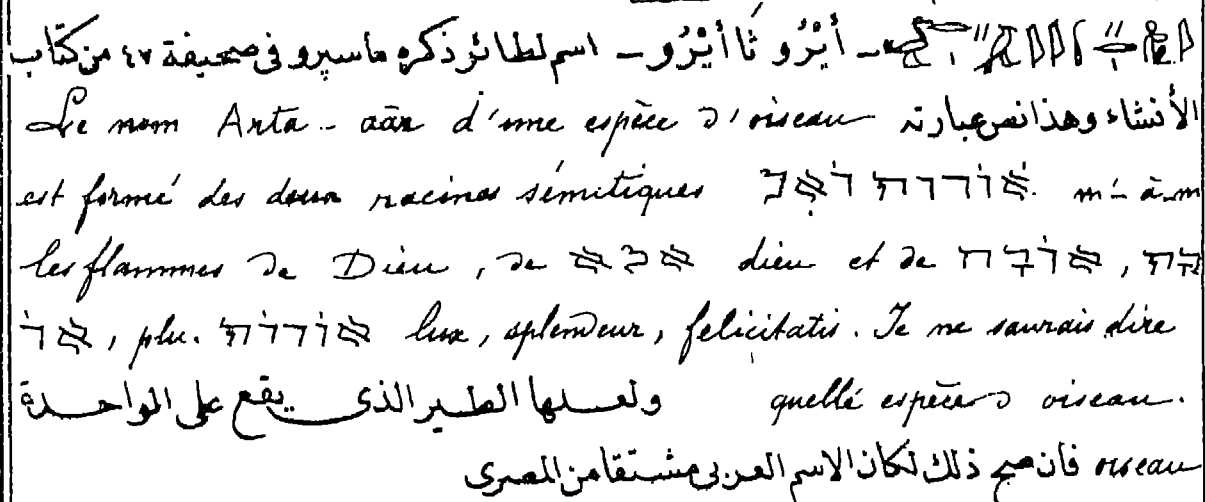 أَيْرُو ثَا أَيْرُو ـ اسم لطائر ذكره ماسپرو فى صحيفة ٤٧ من كتاب
الأنشاء وهذا نص عبارته Le nom Arta-aār d'une espèce d'oiseau
est formé des deux racines sémitiques m-à-m
les flammes de Dieu, de dieu et de
, plu. lux, splendeur, felicitatis. Je ne saurais dire
quellé espèce d oiseau. ولعلها الطير الذى يقع على الواحدة
oiseau فان صح ذلك لكان الاسم العربى مشتقا من المصرى